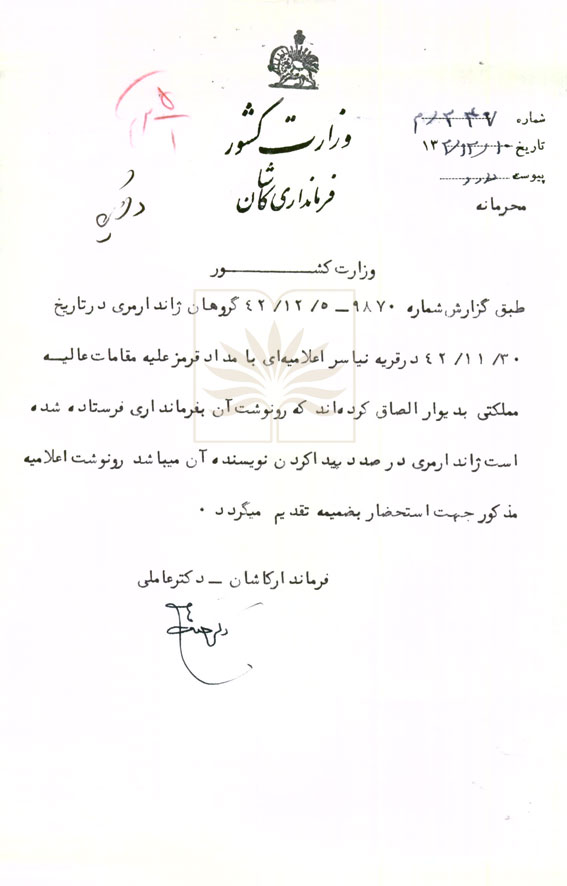 وزارت کشور
فرمانداری کاشان
شماره ۲۴۷/م
تاریخ ۱۰/۱۲/۱۳۴۲
پیوست دارد
محرمانه
۵
وزارت کشـــــــــور
طبق گزارش شماره ۹۸۷۰ ــ ۵/ ۱۲/ ۴۲ گروهان ژاندارمری درتاریخ
۳۰/ ۱۱/ ۴۲ درقریه نیاسر اعلامیه‌ای با مداد قرمز علیه مقامات عالیــه
مملکتی بدیوار الصاق کرده‌اند که رونوشت آن بفرمانداری فرستاده شده
است ژاندارمری در صدد پیداکردن نویسنده آن میباشد رونوشت اعلامیه
مذکور جهت استحضار بضمیمه تقدیم میگردد ۰
فرماندارکاشان ــ دکترعاملی